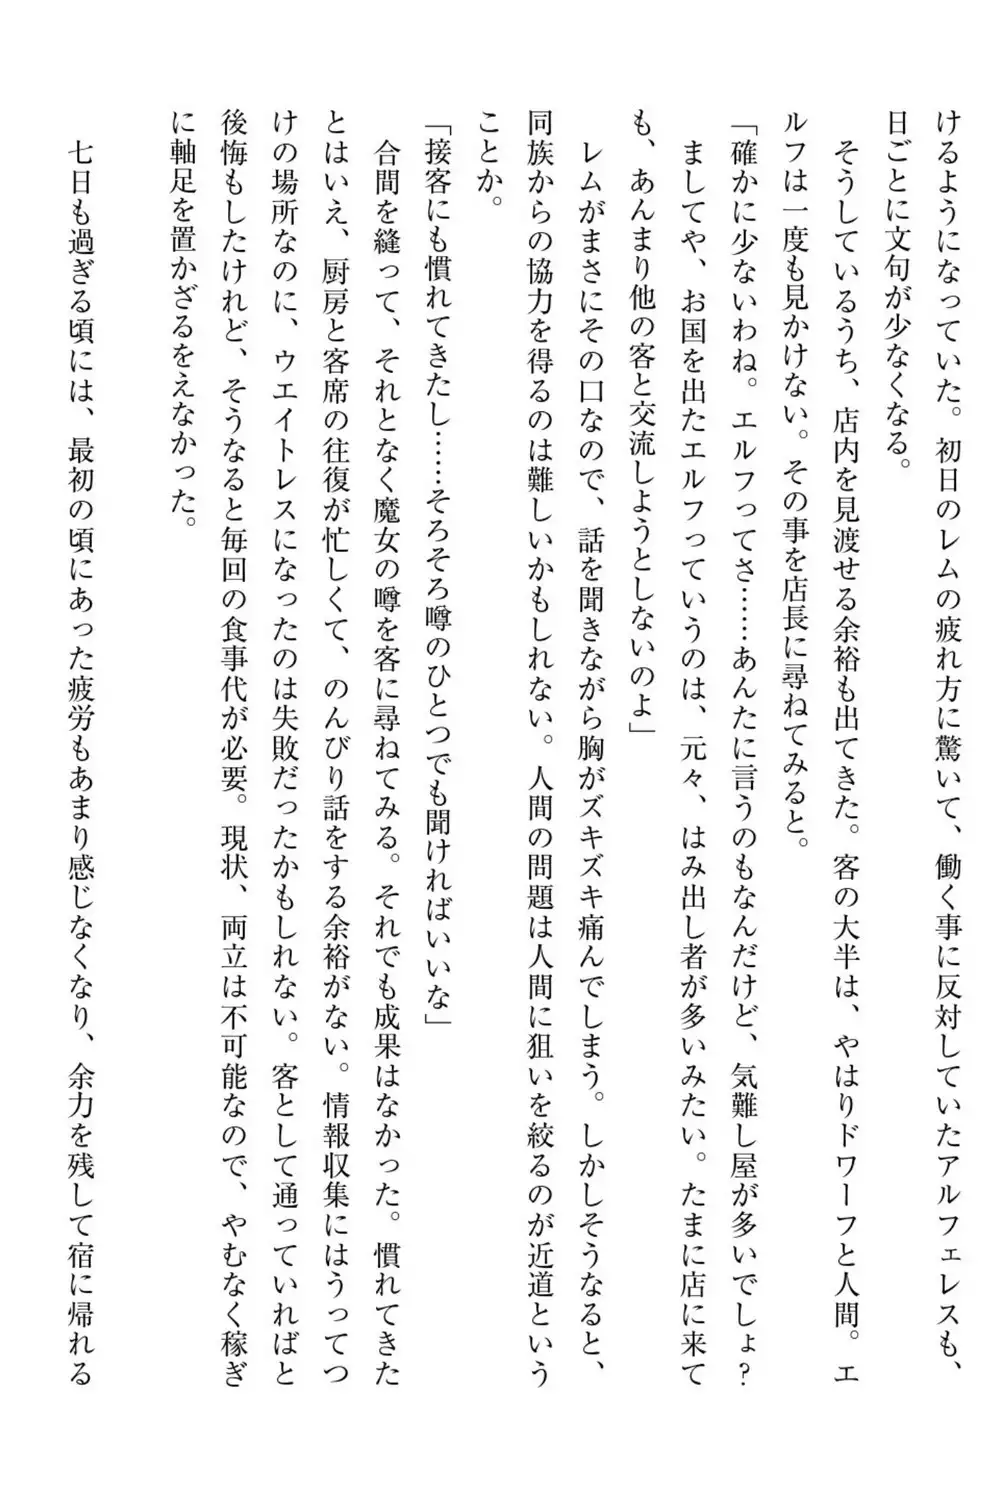 けるようになっていた。初日のレムの疲れ方に驚いて、働く事に反対していたアルフェレスも、
日ごとに文句が少なくなる。
そうしているうち、店内を見渡せる余裕も出てきた。客の大半は、やはりドワーフと人間。エ
ルフは一度も見かけない。その事を店長に尋ねてみると。
「確かに少ないわね。エルフってさ……あんたに言うのもなんだけど、気難し屋が多いでしょ?
ましてや、お国を出たエルフっていうのは、元々、はみ出し者が多いみたい。たまに店に来て
も、あんまり他の客と交流しようとしないのよ」
レムがまさにその口なので、話を聞きながら胸がズキズキ痛んでしまう。しかしそうなると、
同族からの協力を得るのは難しいかもしれない。人間の問題は人間に狙いを絞るのが近道という
ことか。
「接客にも慣れてきたし……そろそろ噂のひとつでも聞ければいいな」
合間を縫って、それとなく魔女の噂を客に尋ねてみる。それでも成果はなかった。慣れてきた
とはいえ、厨房と客席の往復が忙しくて、のんびり話をする余裕がない。情報収集にはうってつ
けの場所なのに、ウエイトレスになったのは失敗だったかもしれない。客として通っていればと
後悔もしたけれど、そうなると毎回の食事代が必要。現状、両立は不可能なので、やむなく稼ぎ
に軸足を置かざるをえなかった。
七日も過ぎる頃には、最初の頃にあった疲労もあまり感じなくなり、余力を残して宿に帰れる